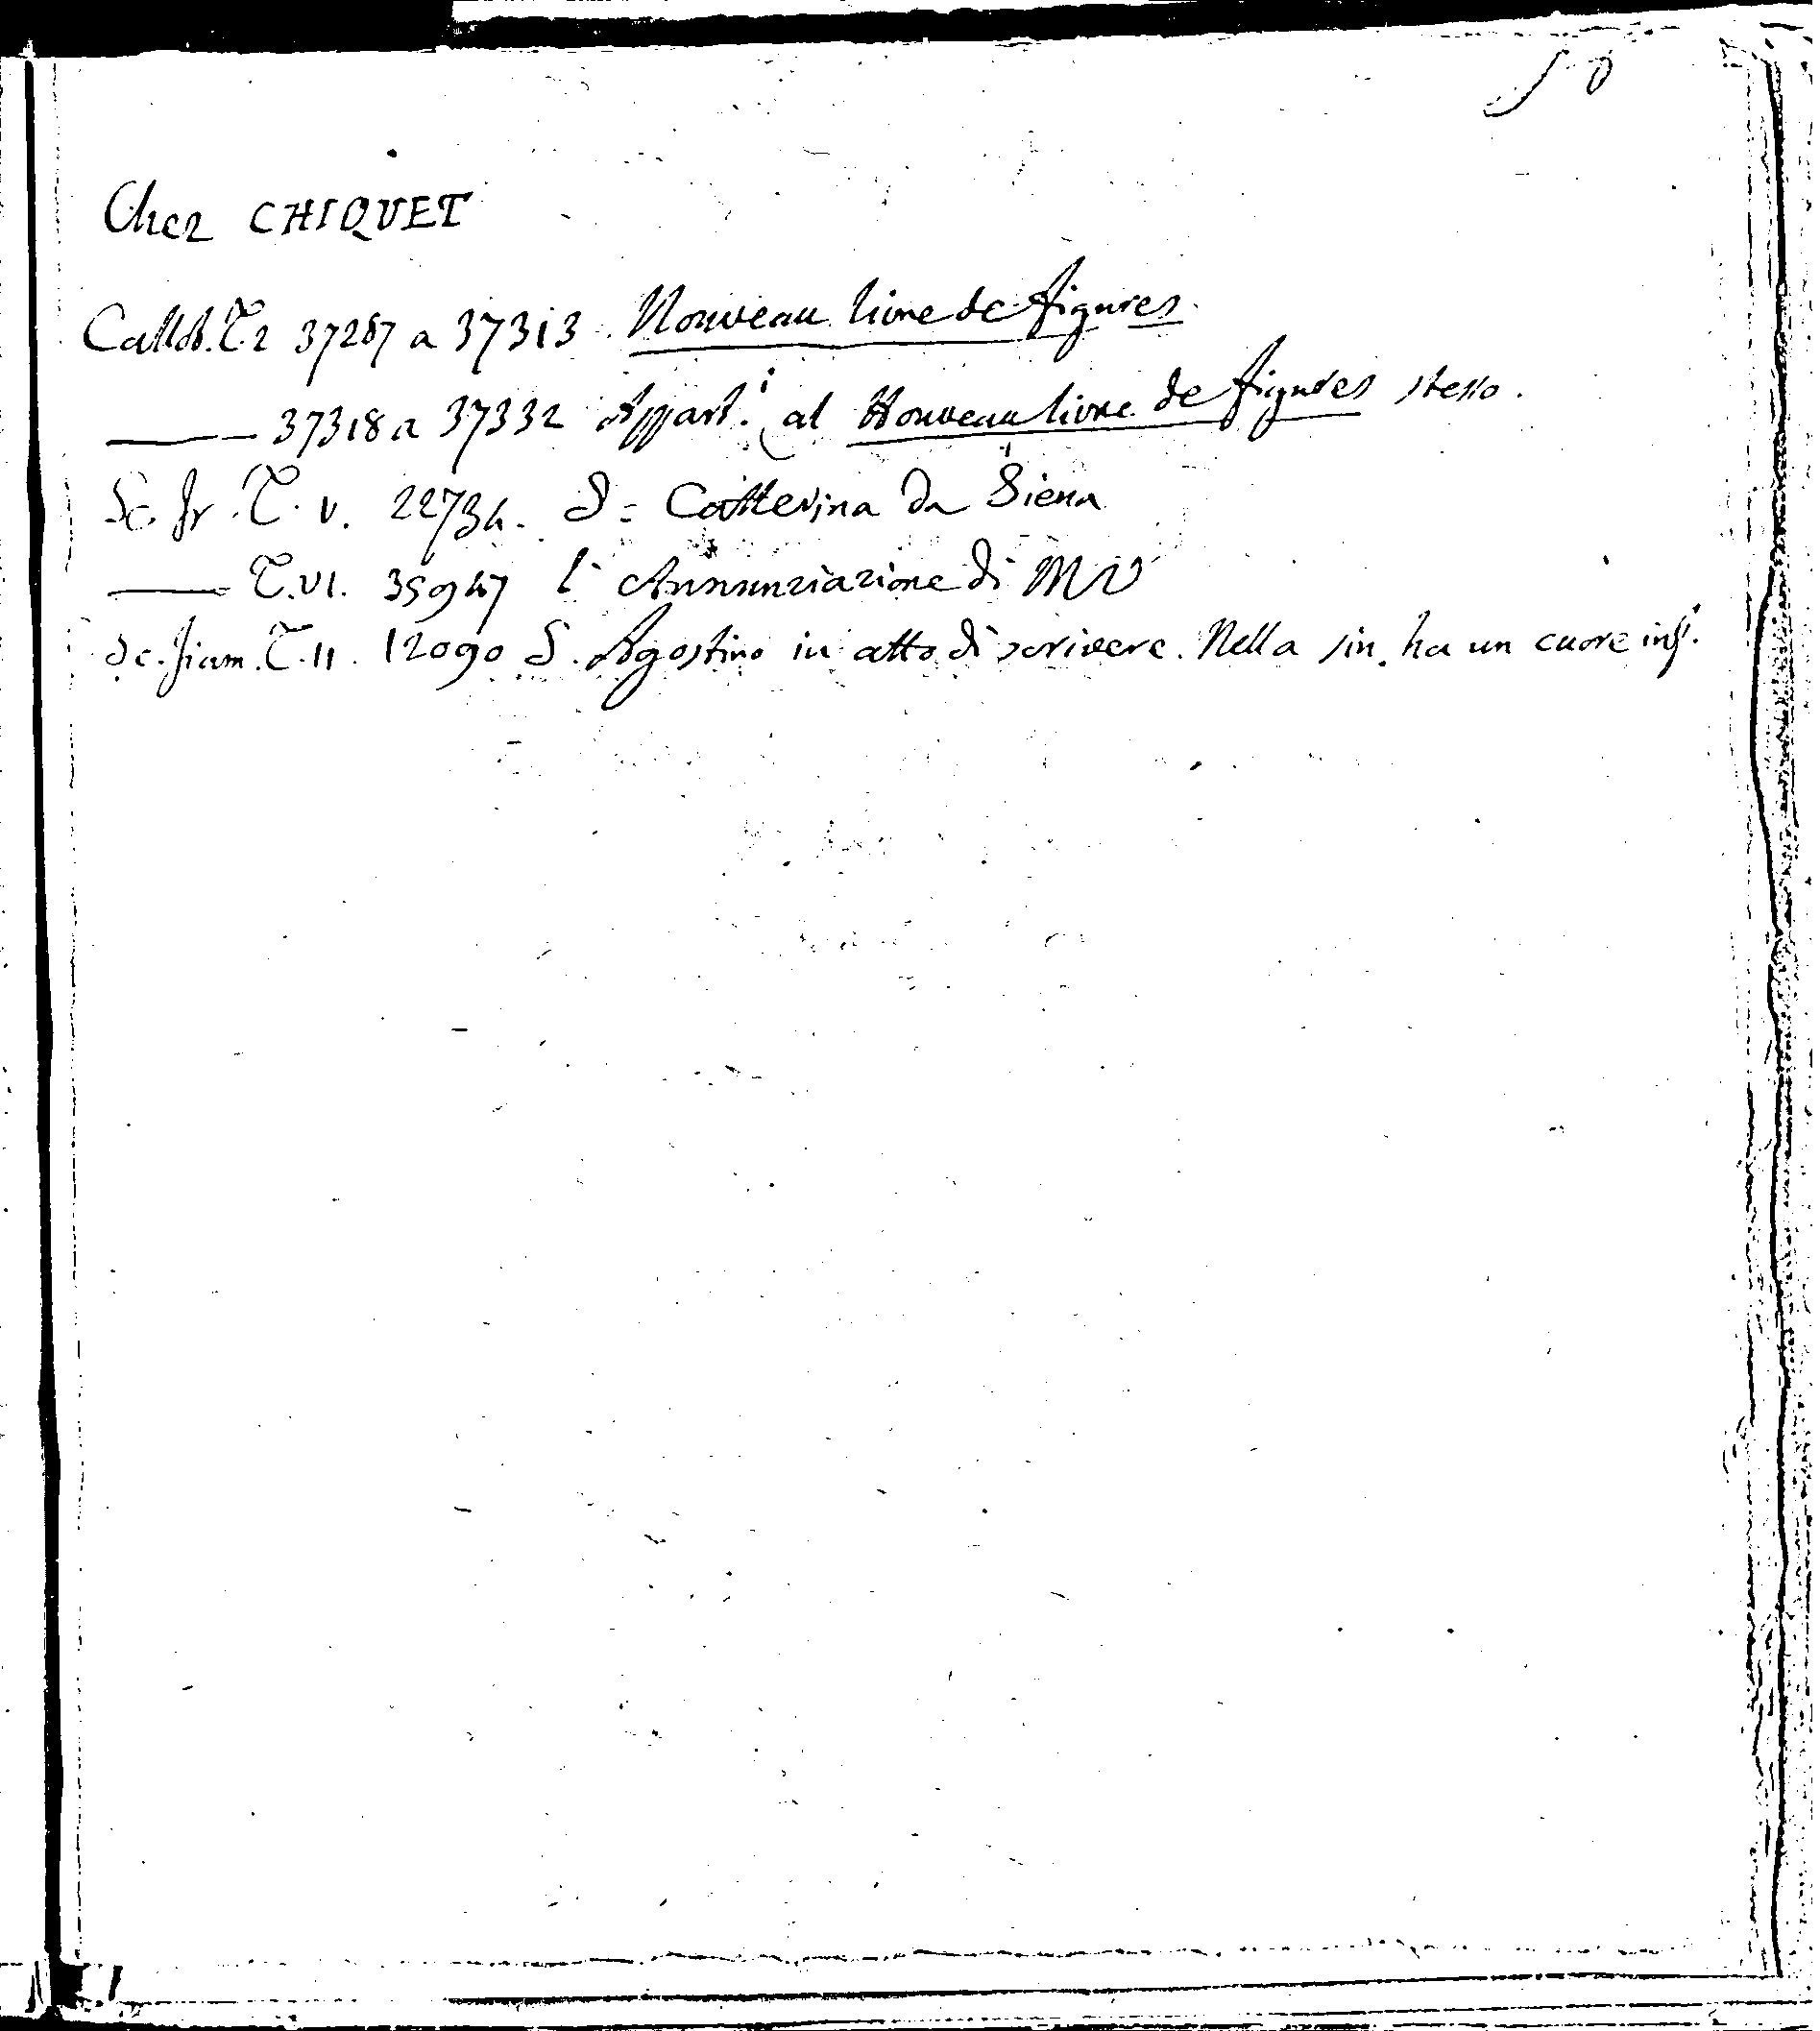 50
Chez CHIQUET
Callot. T. 2 37287 a 37313 Nouveau livre de figures.
37318 a 37332 Appart.i al Nouveau livre de figures stesso.
Sc. fr. T. V. 22734. S. Catterina da Siena
T. VI. 35947 l'Annunziazione di MV
Sc. fiam. T. II. 12090 S. Agostino in atto di scrivere. Nella sin. ha un cuore